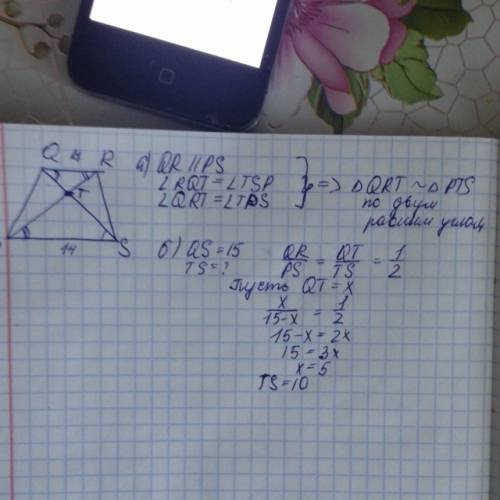 Q R
T
14 S
а) QR || PS
∠RQT = ∠TSP
∠QRT = ∠TPS
=> △QRT ~ △PTS
по двум
равным углам
б) QS = 15
TS = ?
QR/PS = QT/TS = 1/2
Пусть QT = x
x/(15-x) = 1/2
15-x = 2x
15 = 3x
x = 5
TS = 10